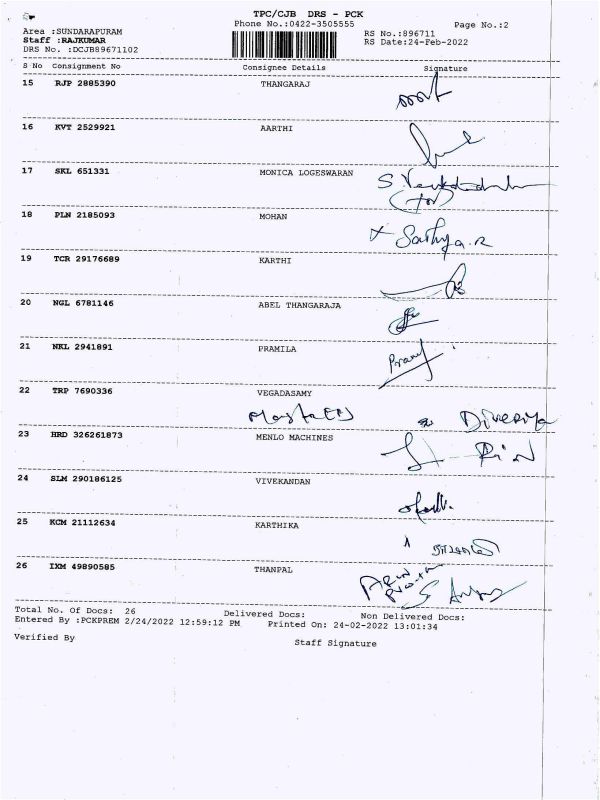 TPC/CJB DRS - PCK
Phone No.:0422-3505555 Page No.:2
Area :SUNDARAPURAM RS No.:896711
Staff :RAJKUMAR RS Date:24-Feb-2022
DRS No. :DCJB89671102
S No Consignment No Consignee Details Signature
15 RJP 2885390 THANGARAJ
16 KVT 2529921 AARTHI
17 SKL 651331 MONICA LOGESWARAN
18 PLN 2185093 MOHAN
Sathya.R
19 TCR 29176689 KARTHI
20 NGL 6781146 ABEL THANGARAJA
21 NKL 2941891 PRAMILA
22 TRP 7690336 VEGADASAMY
23 HRD 326261873 MENLO MACHINES
24 SLM 290186125 VIVEKANDAN
25 KCM 21112634 KARTHIKA
26 IXM 49890585 THANPAL
Total No. Of Docs: 26 Delivered Docs: Non Delivered Docs:
Entered By :PCKPREM 2/24/2022 12:59:12 PM Printed On: 24-02-2022 13:01:34
Verified By Staff Signature